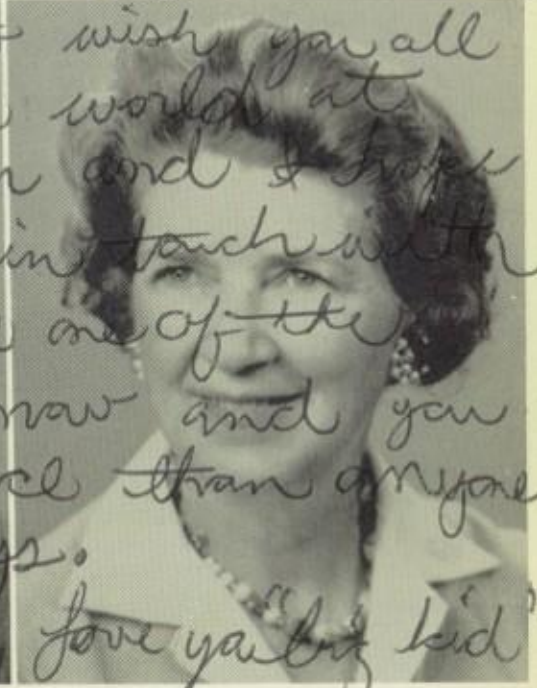 wish you all
world at
and I hope
in touch with
one of the
now and you
than anyone
Love ya "bi kid"